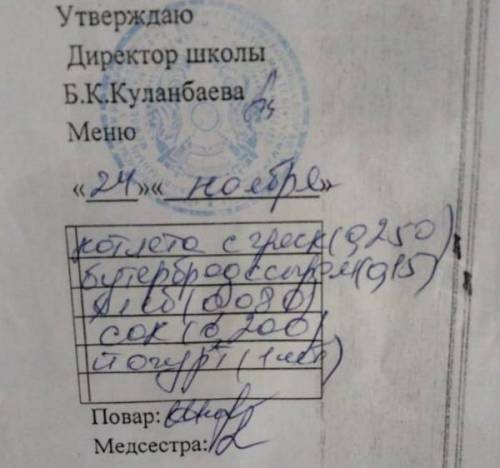 Утверждаю
Директор школы
Б.К.Куланбаева
Меню
«24»«ноября»
котлета с греч(0,250)
бутерброд с сыром(0,15)
хлеб(0,080)
сок(0,200)
йогурт(1шт)
Повар:
Медсестра: